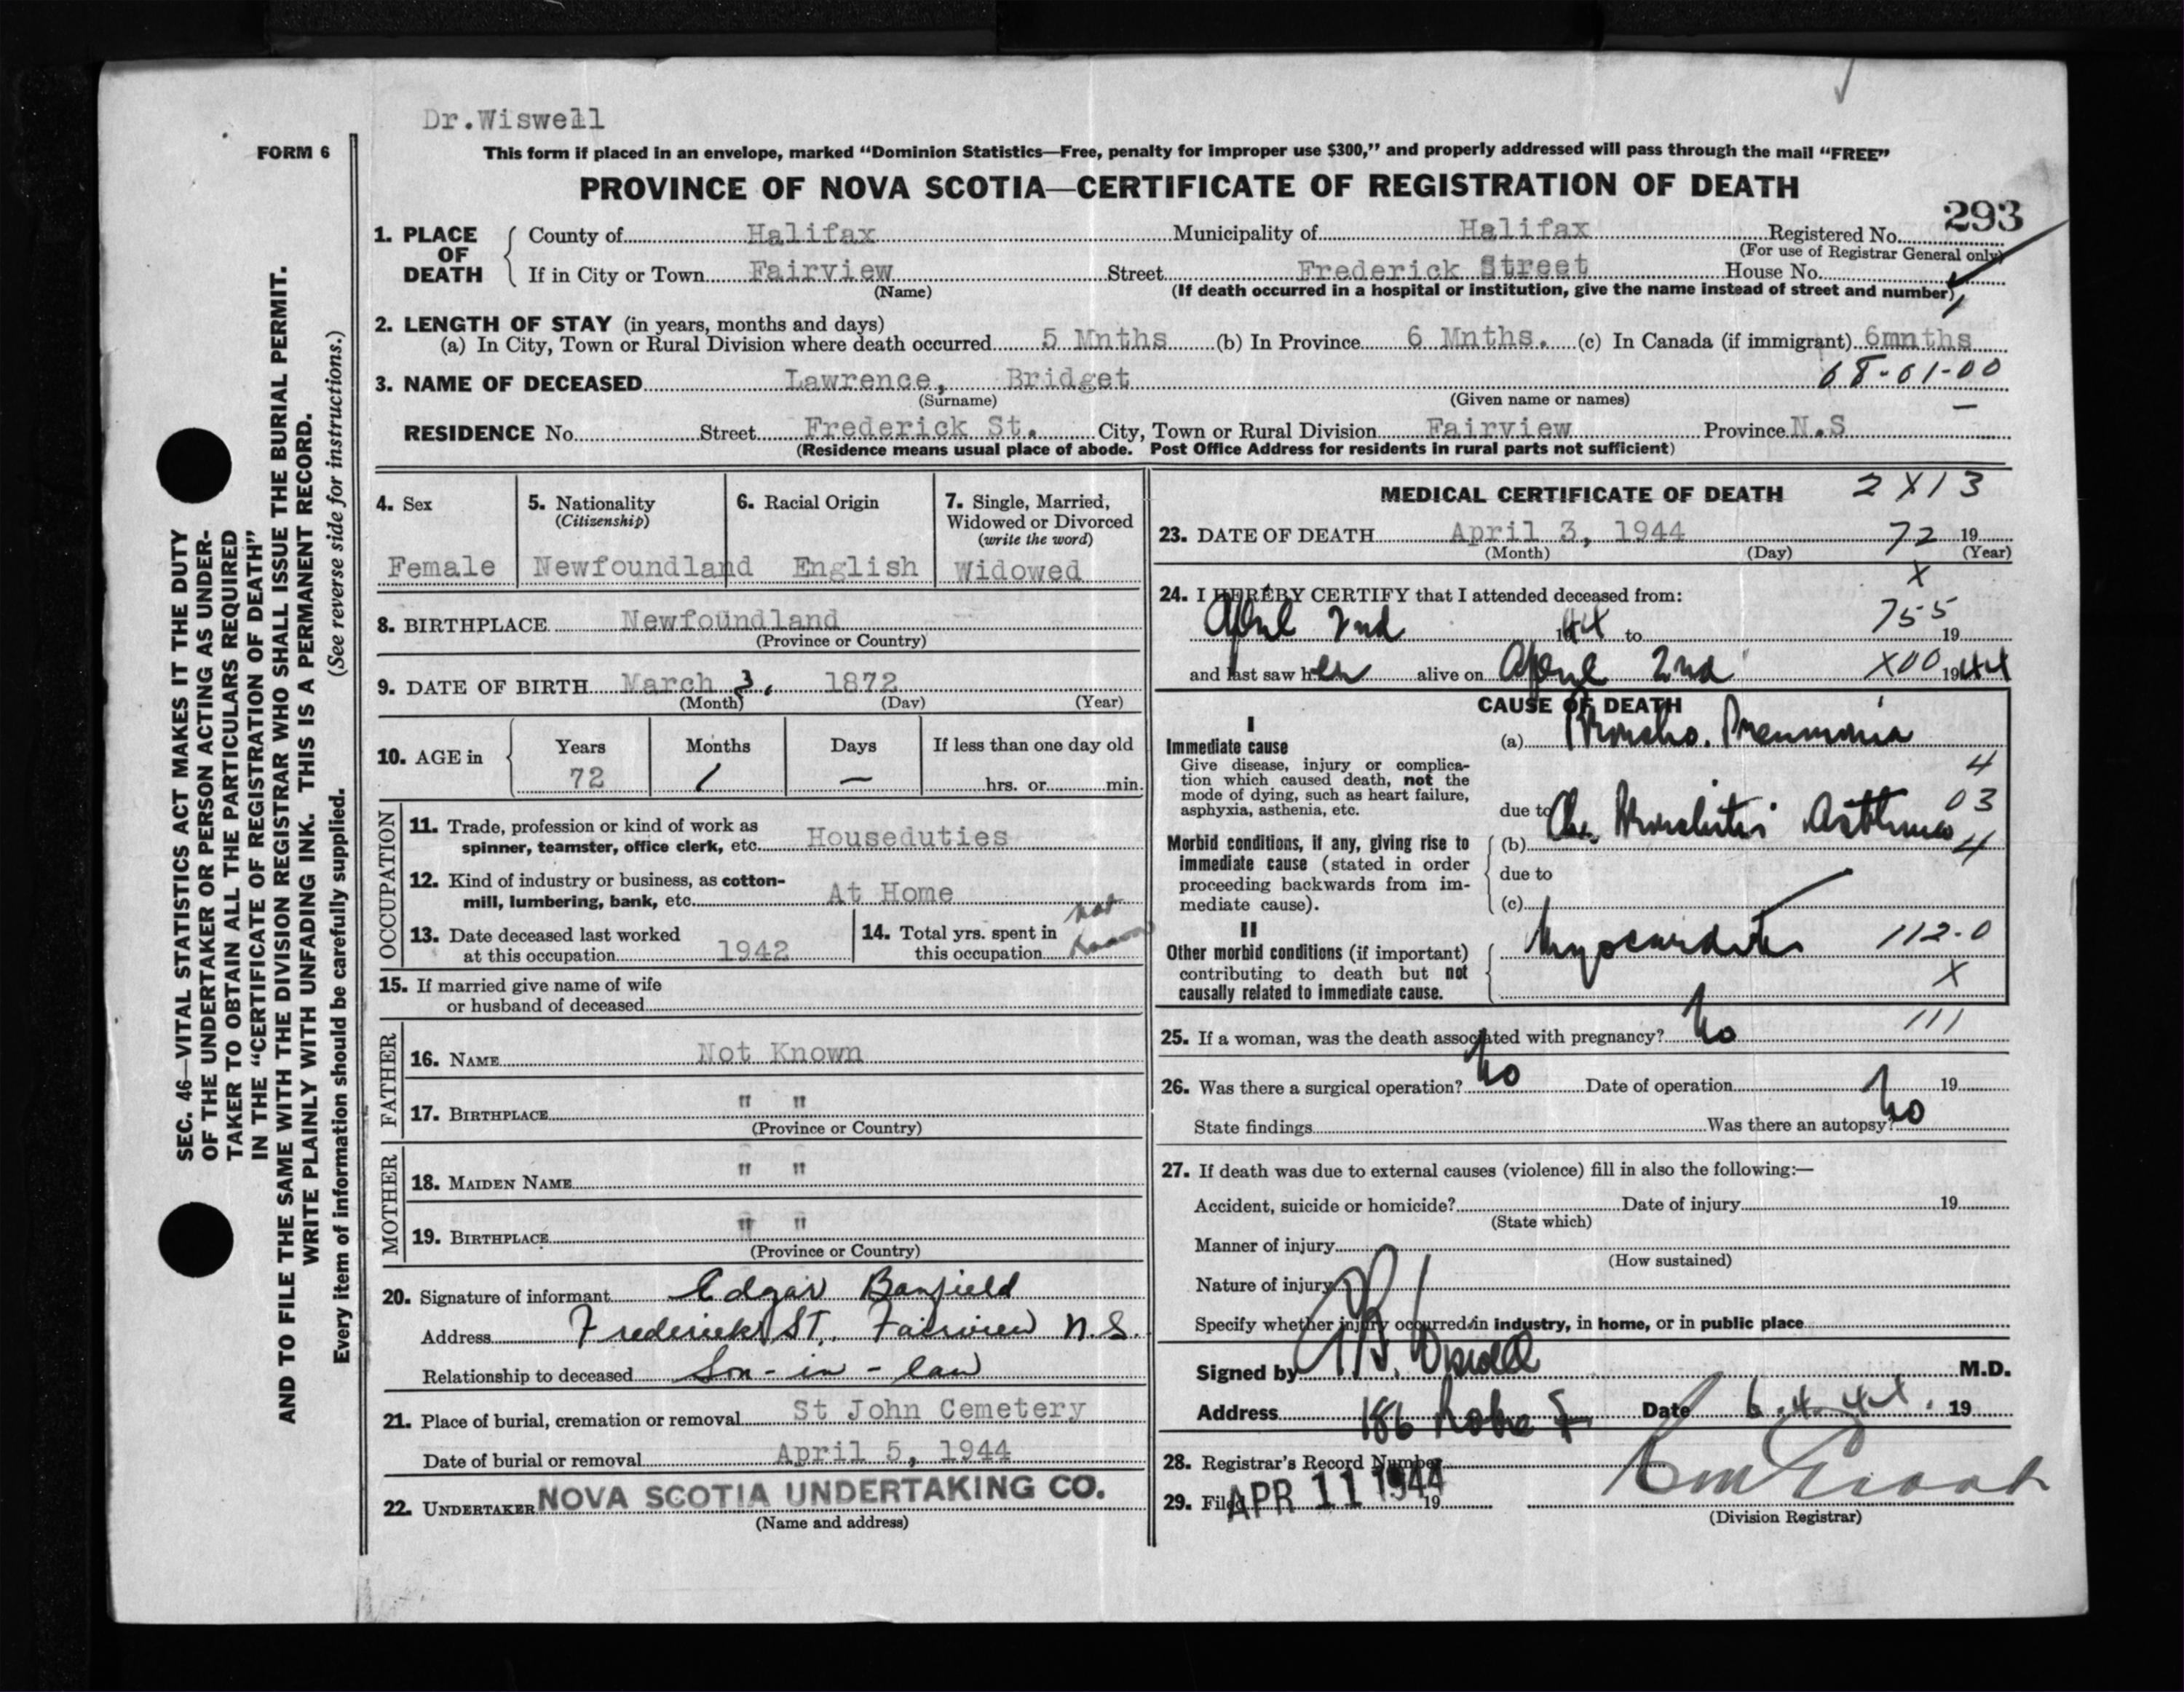 Dr.Wiswell
FORM 6
This form if placed in an envelope, marked “Dominion Statistics—Free, penalty for improper use $300,” and properly addressed will pass through the mail “FREE”
PROVINCE OF NOVA SCOTIA—CERTIFICATE OF REGISTRATION OF DEATH
293
1. PLACE OF DEATH
County of Halifax Municipality of Halifax Registered No.
(For use of Registrar General only)
If in City or Town Fairview Street Frederick Street House No.
(Name) (If death occurred in a hospital or institution, give the name instead of street and number)
2. LENGTH OF STAY (in years, months and days)
(a) In City, Town or Rural Division where death occurred 5 Mnths (b) In Province 6 Mnths. (c) In Canada (if immigrant) 6mnths
3. NAME OF DECEASED Lawrence, Bridget 68-01-00
(Surname) (Given name or names)
RESIDENCE No. Street Frederick St. City, Town or Rural Division Fairview Province N.S
(Residence means usual place of abode. Post Office Address for residents in rural parts not sufficient)
4. Sex
Female
5. Nationality
(Citizenship)
Newfoundland
6. Racial Origin
English
7. Single, Married,
Widowed or Divorced
(write the word)
Widowed
8. BIRTHPLACE Newfoundland
(Province or Country)
9. DATE OF BIRTH March 3, 1872
(Month) (Day) (Year)
10. AGE in
Years Months Days If less than one day old
72 1 — hrs. or min.
OCCUPATION
11. Trade, profession or kind of work as
spinner, teamster, office clerk, etc. Houseduties
12. Kind of industry or business, as cotton-
mill, lumbering, bank, etc. At Home
13. Date deceased last worked
at this occupation 1942
14. Total yrs. spent in
this occupation not known
15. If married give name of wife
or husband of deceased
FATHER
16. NAME Not Known
17. BIRTHPLACE " "
(Province or Country)
MOTHER
18. MAIDEN NAME " "
19. BIRTHPLACE " "
(Province or Country)
20. Signature of informant Edgar Banfield
Address Frederick ST. Fairview N.S.
Relationship to deceased Son-in-law
21. Place of burial, cremation or removal St John Cemetery
Date of burial or removal April 5, 1944
22. UNDERTAKER NOVA SCOTIA UNDERTAKING CO.
(Name and address)
MEDICAL CERTIFICATE OF DEATH 2X13
23. DATE OF DEATH April 3, 1944 72 19
(Month) (Day) (Year)
X
24. I HEREBY CERTIFY that I attended deceased from:
April 2nd 1944 to 755 19
and last saw her alive on April 2nd X00 1944
CAUSE OF DEATH
I
Immediate cause
Give disease, injury or complica-
tion which caused death, not the
mode of dying, such as heart failure,
asphyxia, asthenia, etc.
(a) Broncho. Pneumonia
4
due to
03
Morbid conditions, if any, giving rise to
immediate cause (stated in order
proceeding backwards from im-
mediate cause).
(b) Chr. Bronchitis Asthma
4
due to
(c)
II
Other morbid conditions (if important)
contributing to death but not
causally related to immediate cause.
Myocarditis 112-0
X
111
25. If a woman, was the death associated with pregnancy? No
26. Was there a surgical operation? No Date of operation 19
State findings Was there an autopsy? No
27. If death was due to external causes (violence) fill in also the following:—
Accident, suicide or homicide? Date of injury 19
(State which)
Manner of injury
(How sustained)
Nature of injury
Specify whether injury occurred in industry, in home, or in public place
Signed by Wiswell M.D.
Address 186 Date 6.4.44. 19
28. Registrar's Record Number
29. Filed APR 11 1944 19
(Division Registrar)
SEC. 46—VITAL STATISTICS ACT MAKES IT THE DUTY
OF THE UNDERTAKER OR PERSON ACTING AS UNDER-
TAKER TO OBTAIN ALL THE PARTICULARS REQUIRED
IN THE “CERTIFICATE OF REGISTRATION OF DEATH”
AND TO FILE THE SAME WITH THE DIVISION REGISTRAR WHO SHALL ISSUE THE BURIAL PERMIT.
WRITE PLAINLY WITH UNFADING INK. THIS IS A PERMANENT RECORD.
Every item of information should be carefully supplied. (See reverse side for instructions.)